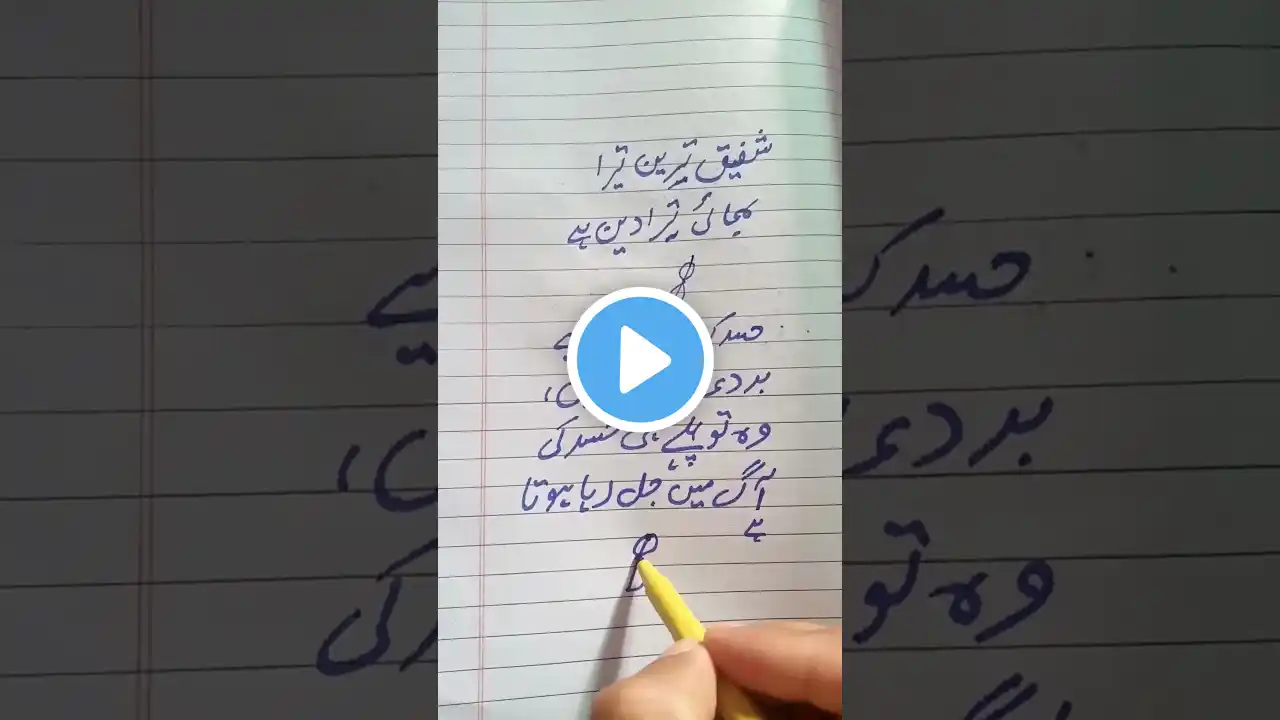 شفیق ترین ترا
بھائی ترا دین ہے
حسد ک
بد د
وہ تو پہلے ہی حسد کی
آگ میں جل رہا ہوتا
ہے